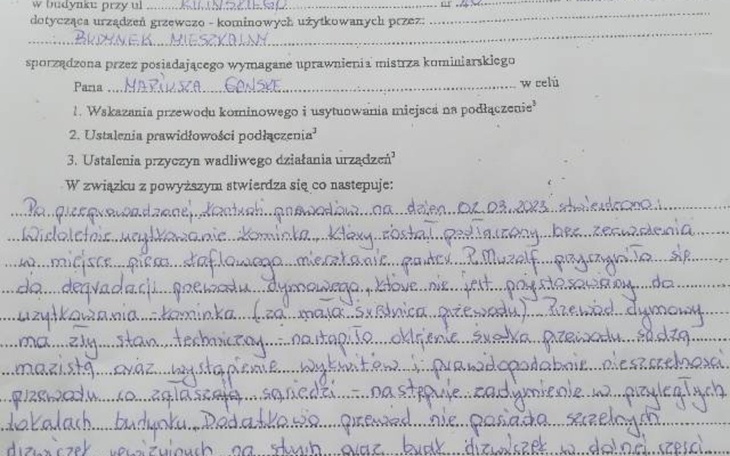 w budynku przy ul KILIŃSKIEGO nr 40
dotycząca urządzeń grzewczo - kominowych użytkowanych przez:
BUDYNEK MIESZKALNY
sporządzona przez posiadającego wymagane uprawnienia mistrza kominiarskiego
Pana MARIUSZA GANSKE w celu
1. Wskazania przewodu kominowego i usytuowania miejsca na podłączenie³
2. Ustalenia prawidłowości podłączenia³
3. Ustalenia przyczyn wadliwego działania urządzeń³
W związku z powyższym stwierdza się co nastepuje:
Po przeprowadzanej kontroli przewodów na dzień 02.03.2023 stwierdzono:
Wieloletnie użytkowanie kominka, który został podłączony bez zezwolenia
w miejsce pieca kaflowego mieszkanie parter P. Muzolf przyczyniło się
do degradacji przewodu dymowego, które nie jest przystosowany do
użytkowania kominka (za mała średnica przewodu) Przewód dymowy
ma zły stan techniczny - nastąpiło oklejenie światła przewodu sadzą
mazistą oraz wystąpienie wykwitów i prawdopodobnie nieszczelności
przewodu co zgłaszają sąsiedzi - następuje zadymienie w przyległych
lokalach budynku. Dodatkowo przewód nie posiada szczelnych
drzwiczek rewizyjnych na strych oraz brak drzwiczek w dolnej części